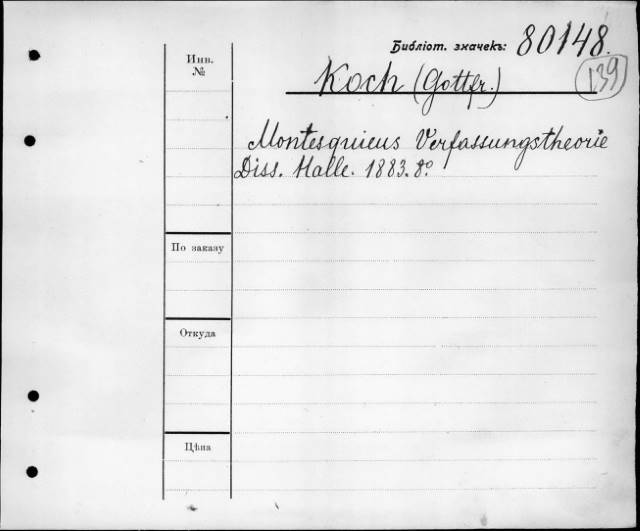 Библіот. значекъ: 80148.
139
Инв.
№
Koch (Gottfr.)
Montesquieus Verfassungstheorie
Diss. Halle. 1883. 8°.
По заказу
Откуда
Цѣна